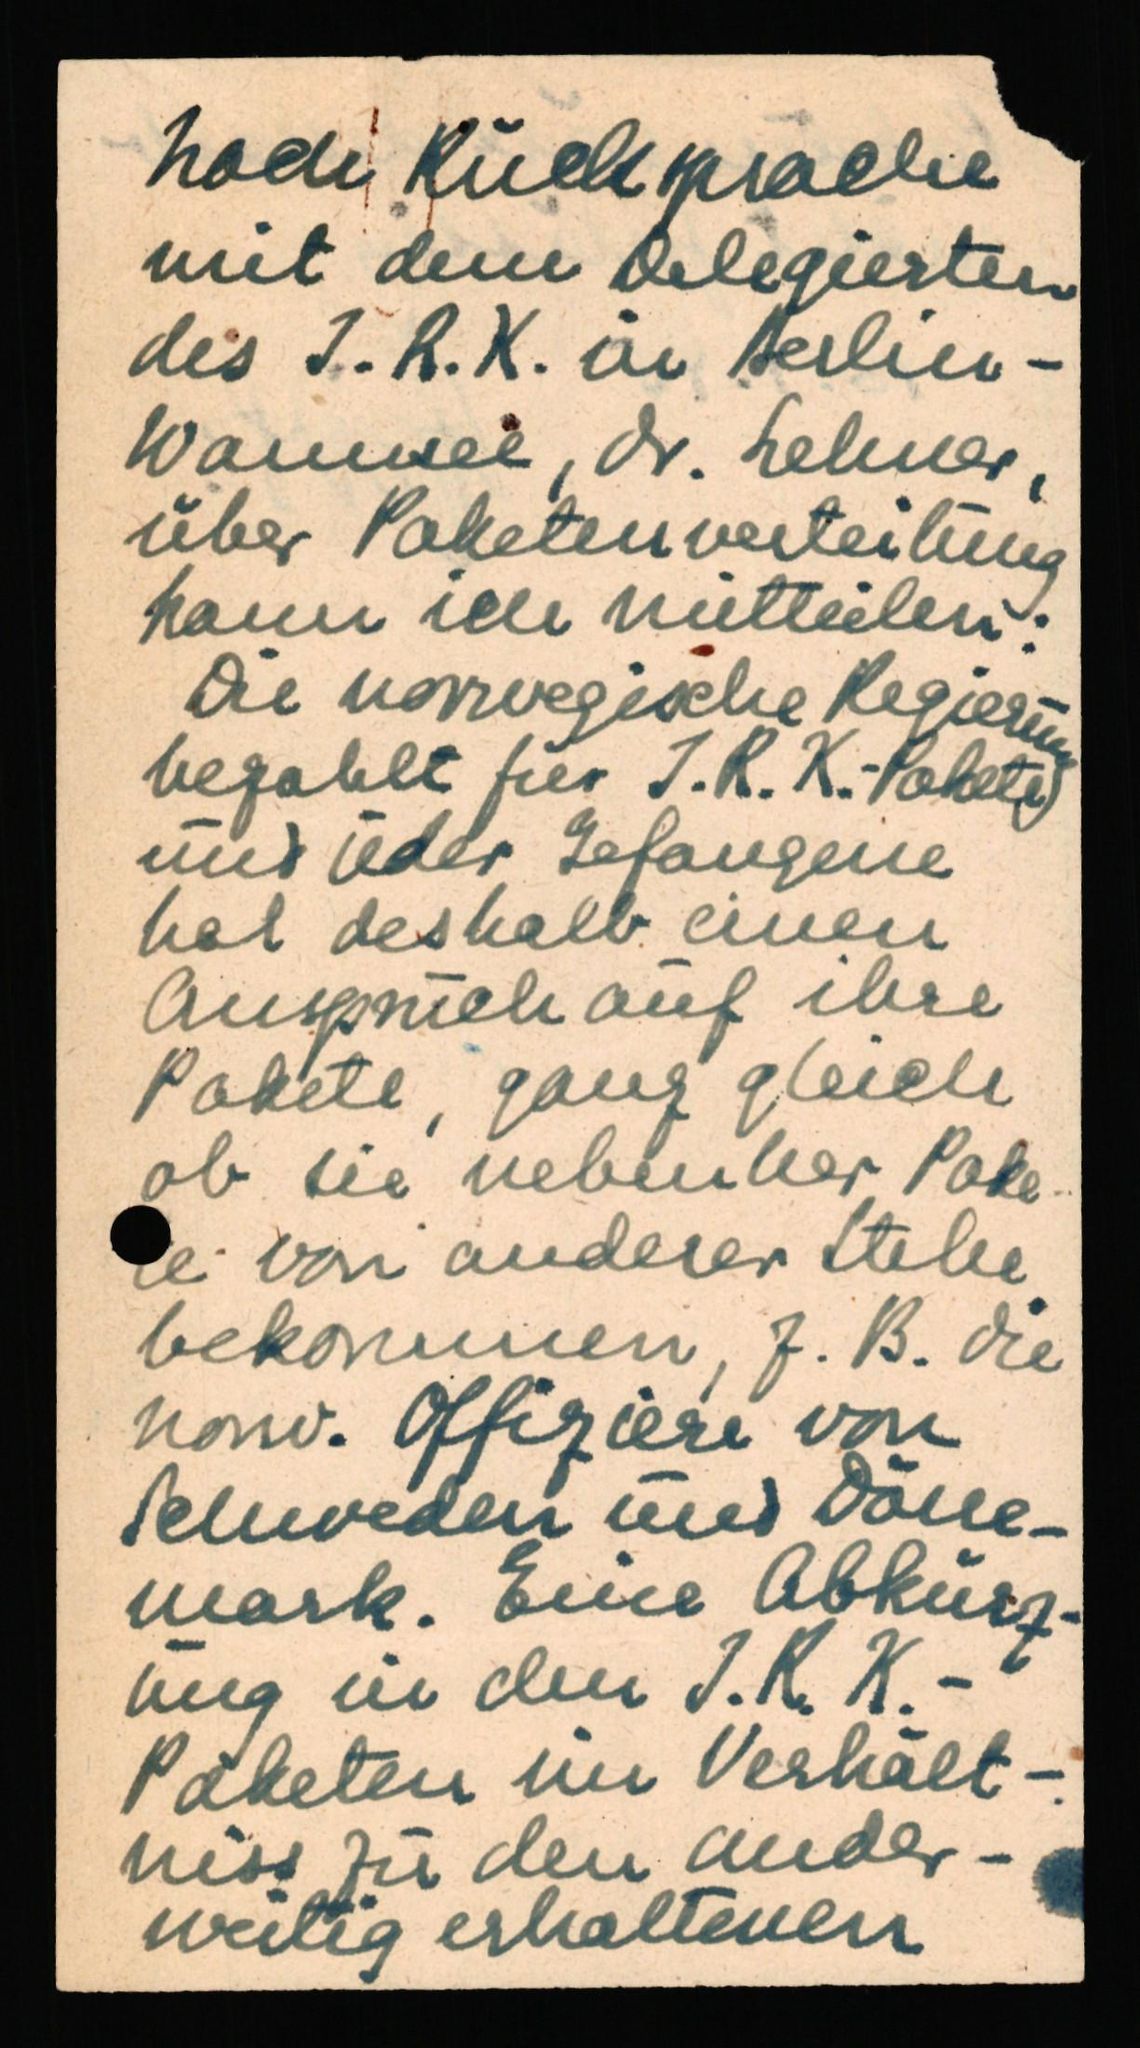 Nach Rücksprache
mit dem Delegierten
des I.R.K. in Berlin-
Wannsee, Dr. Lehner,
über Paketenverteilung
kann ich mitteilen:
Die norrwegische Regierung
bezahlt für I.R.K.-Pakete)
und jeder Gefangene
hat deshalb einen
Anspruch auf ihre
Pakete, ganz gleich
ob sie nebenher Pake-
te von anderer Stelle
bekommen, z. B. die
norw. Offiziere von
Schweden und Däne-
mark. Eine Abkürz-
ung in den I.R.K.-
Paketen im Verhält-
niss zu den ander-
weitig erhaltenen